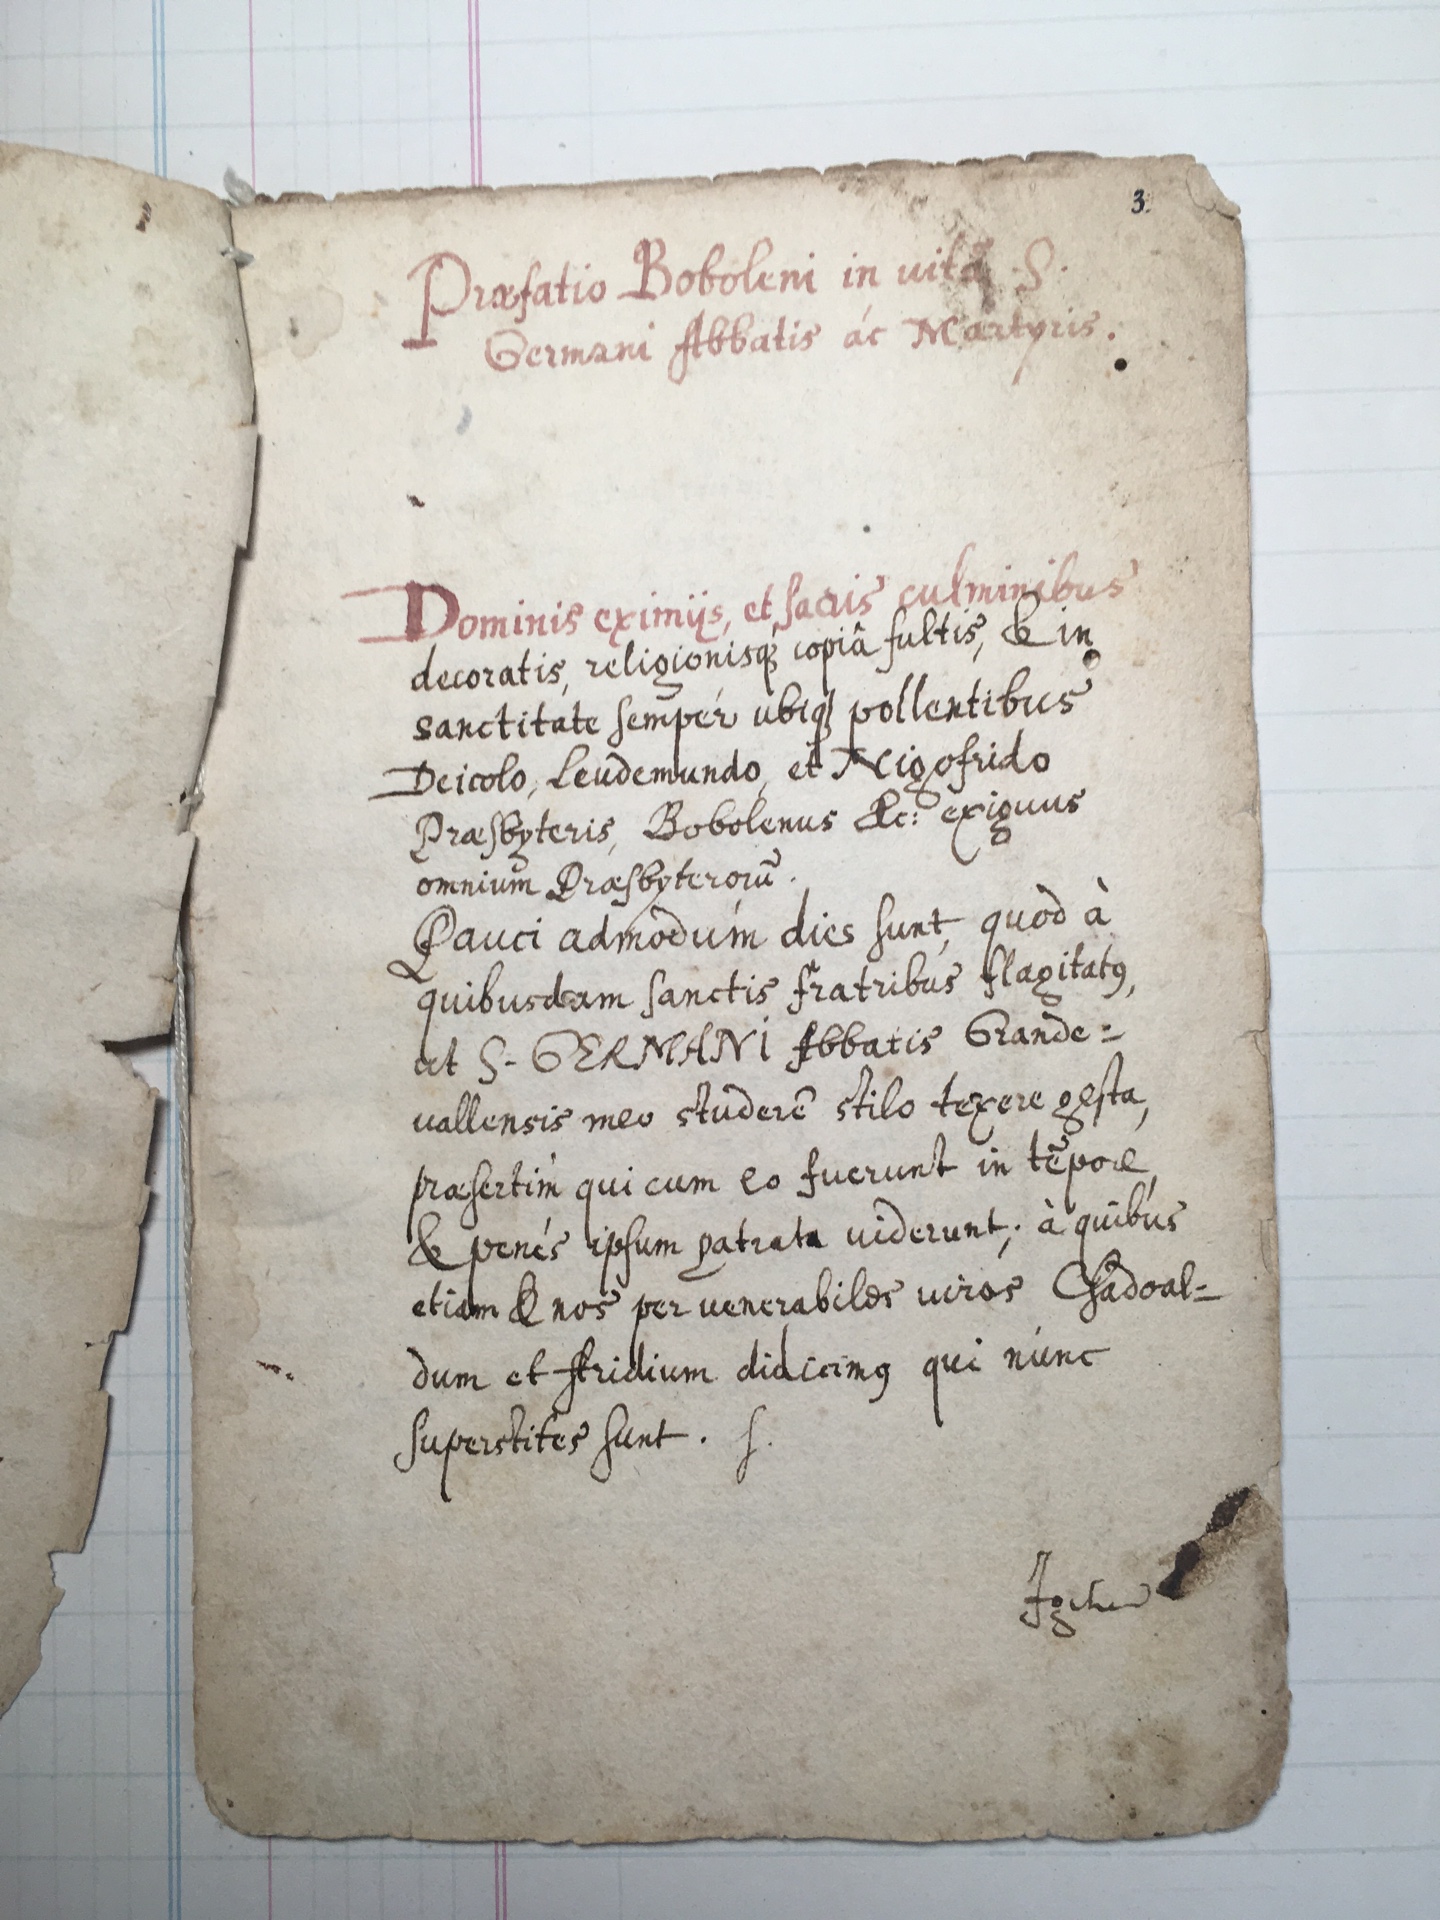 3.
Præfatio Boboleni in uitā S.
Germani Abbatis ác Martyris.
Dominis eximijs, et sacris culminibus
decoratis, religionisq́ copiâ fultis, & in
sanctitate semper ubiq́ pollentibus
Deicolo, Leudemundo, et Nigofrido
Præsbyteris, Bobolenus &c: exiguus
omnium Præsbyterorū.
Pauci admodúm dies sunt, quòd à
quibusdam sanctis fratribus flagitatꝰ,
ut S. GERMANI Abbatis Grande=
uallensis meo studerē stilo texere gesta,
præsertim qui cum eo fuerunt in tēpore,
& penés ipsum patrata uiderunt; à quibus
etiam & nos per uenerabiles uiros Chadoal=
dum et Aridium didicimꝰ qui núnc
superstites sunt. S.